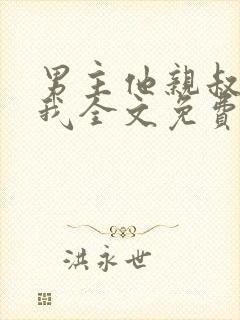 男主他親叔
我全文免費
洪永世